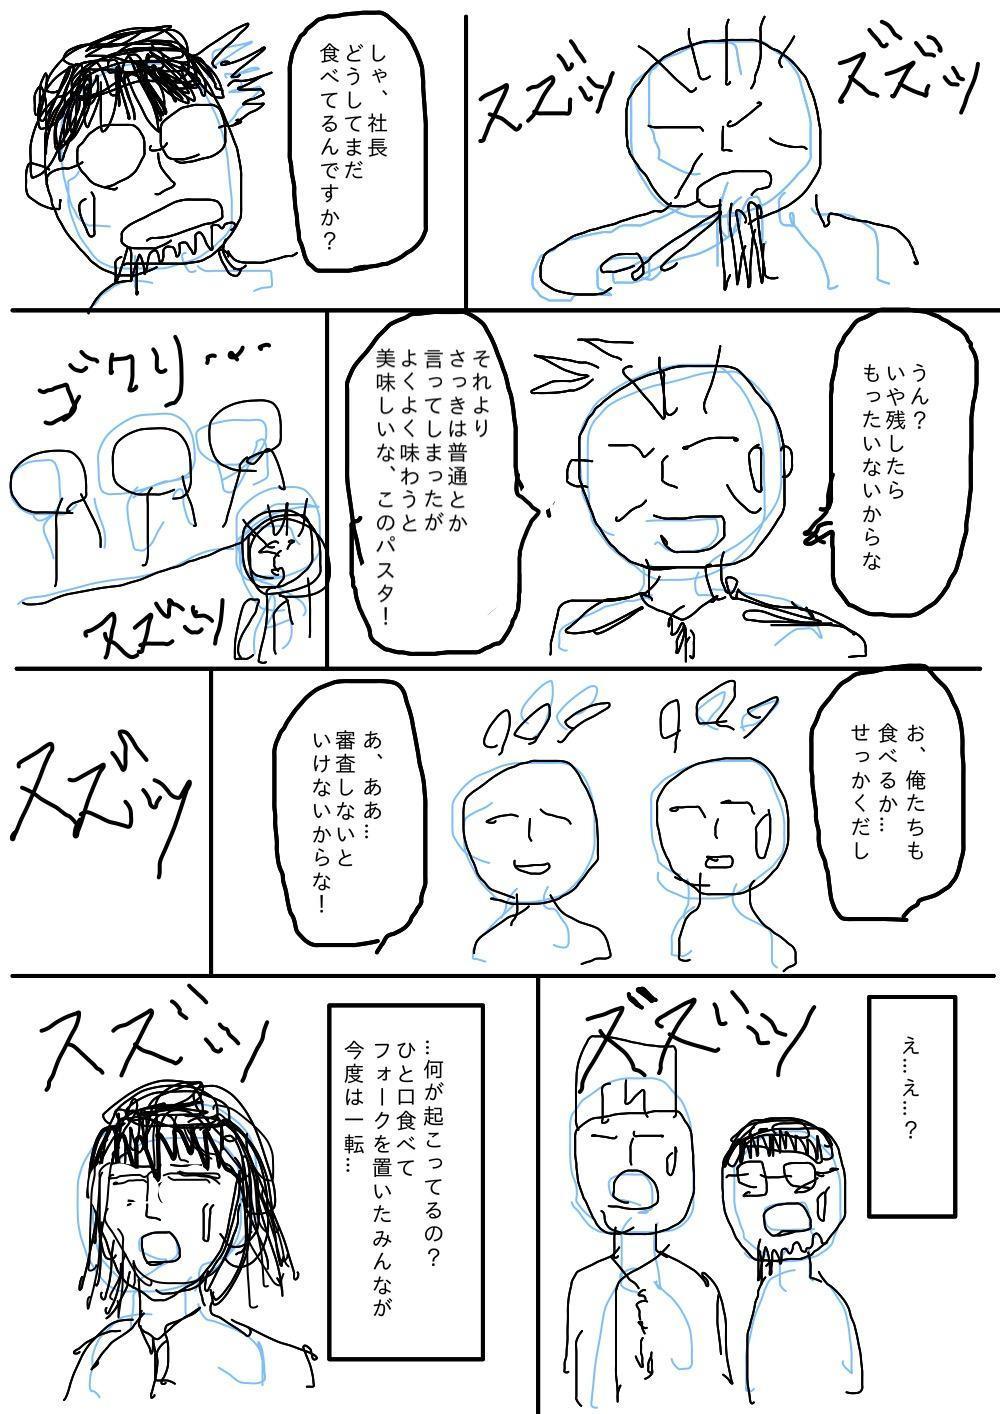 スズッ
スズッ
しゃ、社長
どうしてまだ
食べてるんですか？
うん？
いや残したら
もったいないからな
それより
さっきは普通とか
言ってしまったが
よくよく味わうと
美味しいな、このパスタ！
ゴクリ…
スズッ
お、俺たちも
食べるか…
せっかくだし
あ、ああ…
審査しないと
いけないからな！
スズッ
え…え…？
ズズッ
…何が起こってるの？
ひと口食べて
フォークを置いたみんなが
今度は一転…
スズッ